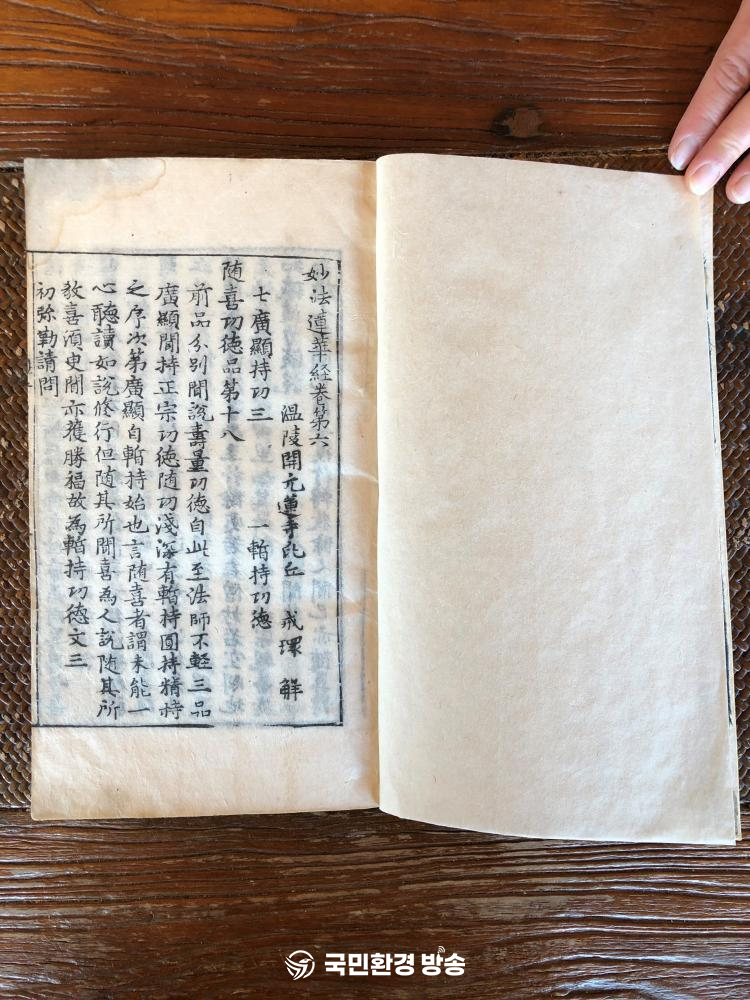 妙法蓮華経巻第六
温陵開元蓮寺比丘 戒環 解
七廣顯持功三 一暫持功徳
随喜功徳品第十八
前品分別聞說壽量功徳自此至法師不軽三品
廣顯聞持正宗功徳随功淺深有暫持圎持精持
之序次第廣顯自暫持始也言随喜者謂未能一
心聴讀如說修行但随其所聞喜為人說随其所
教喜湏史聞亦獲勝福故為暫持功徳文三
初弥勒請問
국민환경 방송